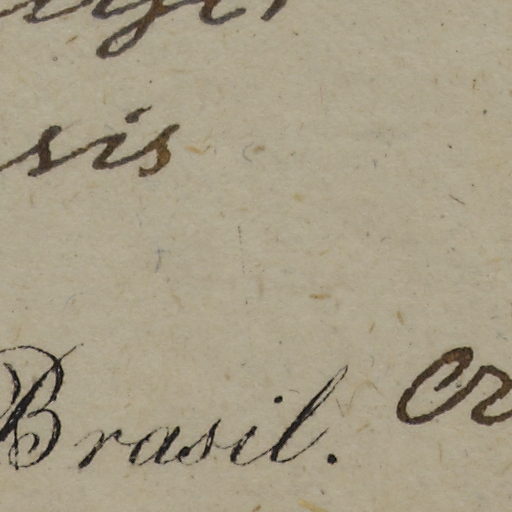 sis
Brasil. or